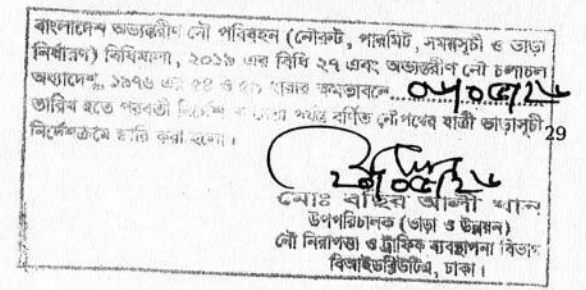 বাংলাদেশ অভ্যন্তরীণ নৌ পরিবহন (নৌরুট, পারমিট, সময়সূচী ও ভাড়া
নির্ধারণ) বিধিমালা, ২০১৯ এর বিধি ২৭ এবং অভ্যন্তরীণ নৌ চলাচল
অধ্যাদেশ, ১৯৭৬ এর ৫৪ ও ধারার ক্ষমতাবলে
তারিখ হতে পরবর্তী নির্দেশ না দেয়া পর্যন্ত বর্ণিত নৌপথের যাত্রী ভাড়াসূচী
29
নির্দেশক্রমে জারি করা হলো।
মোঃ বছির আলী খান
উপপরিচালক (ভাড়া ও উন্নয়ন)
নৌ নিরাপত্তা ও ট্রাফিক ব্যবস্থাপনা বিভাগ
বিআইডব্লিউটিএ, ঢাকা।